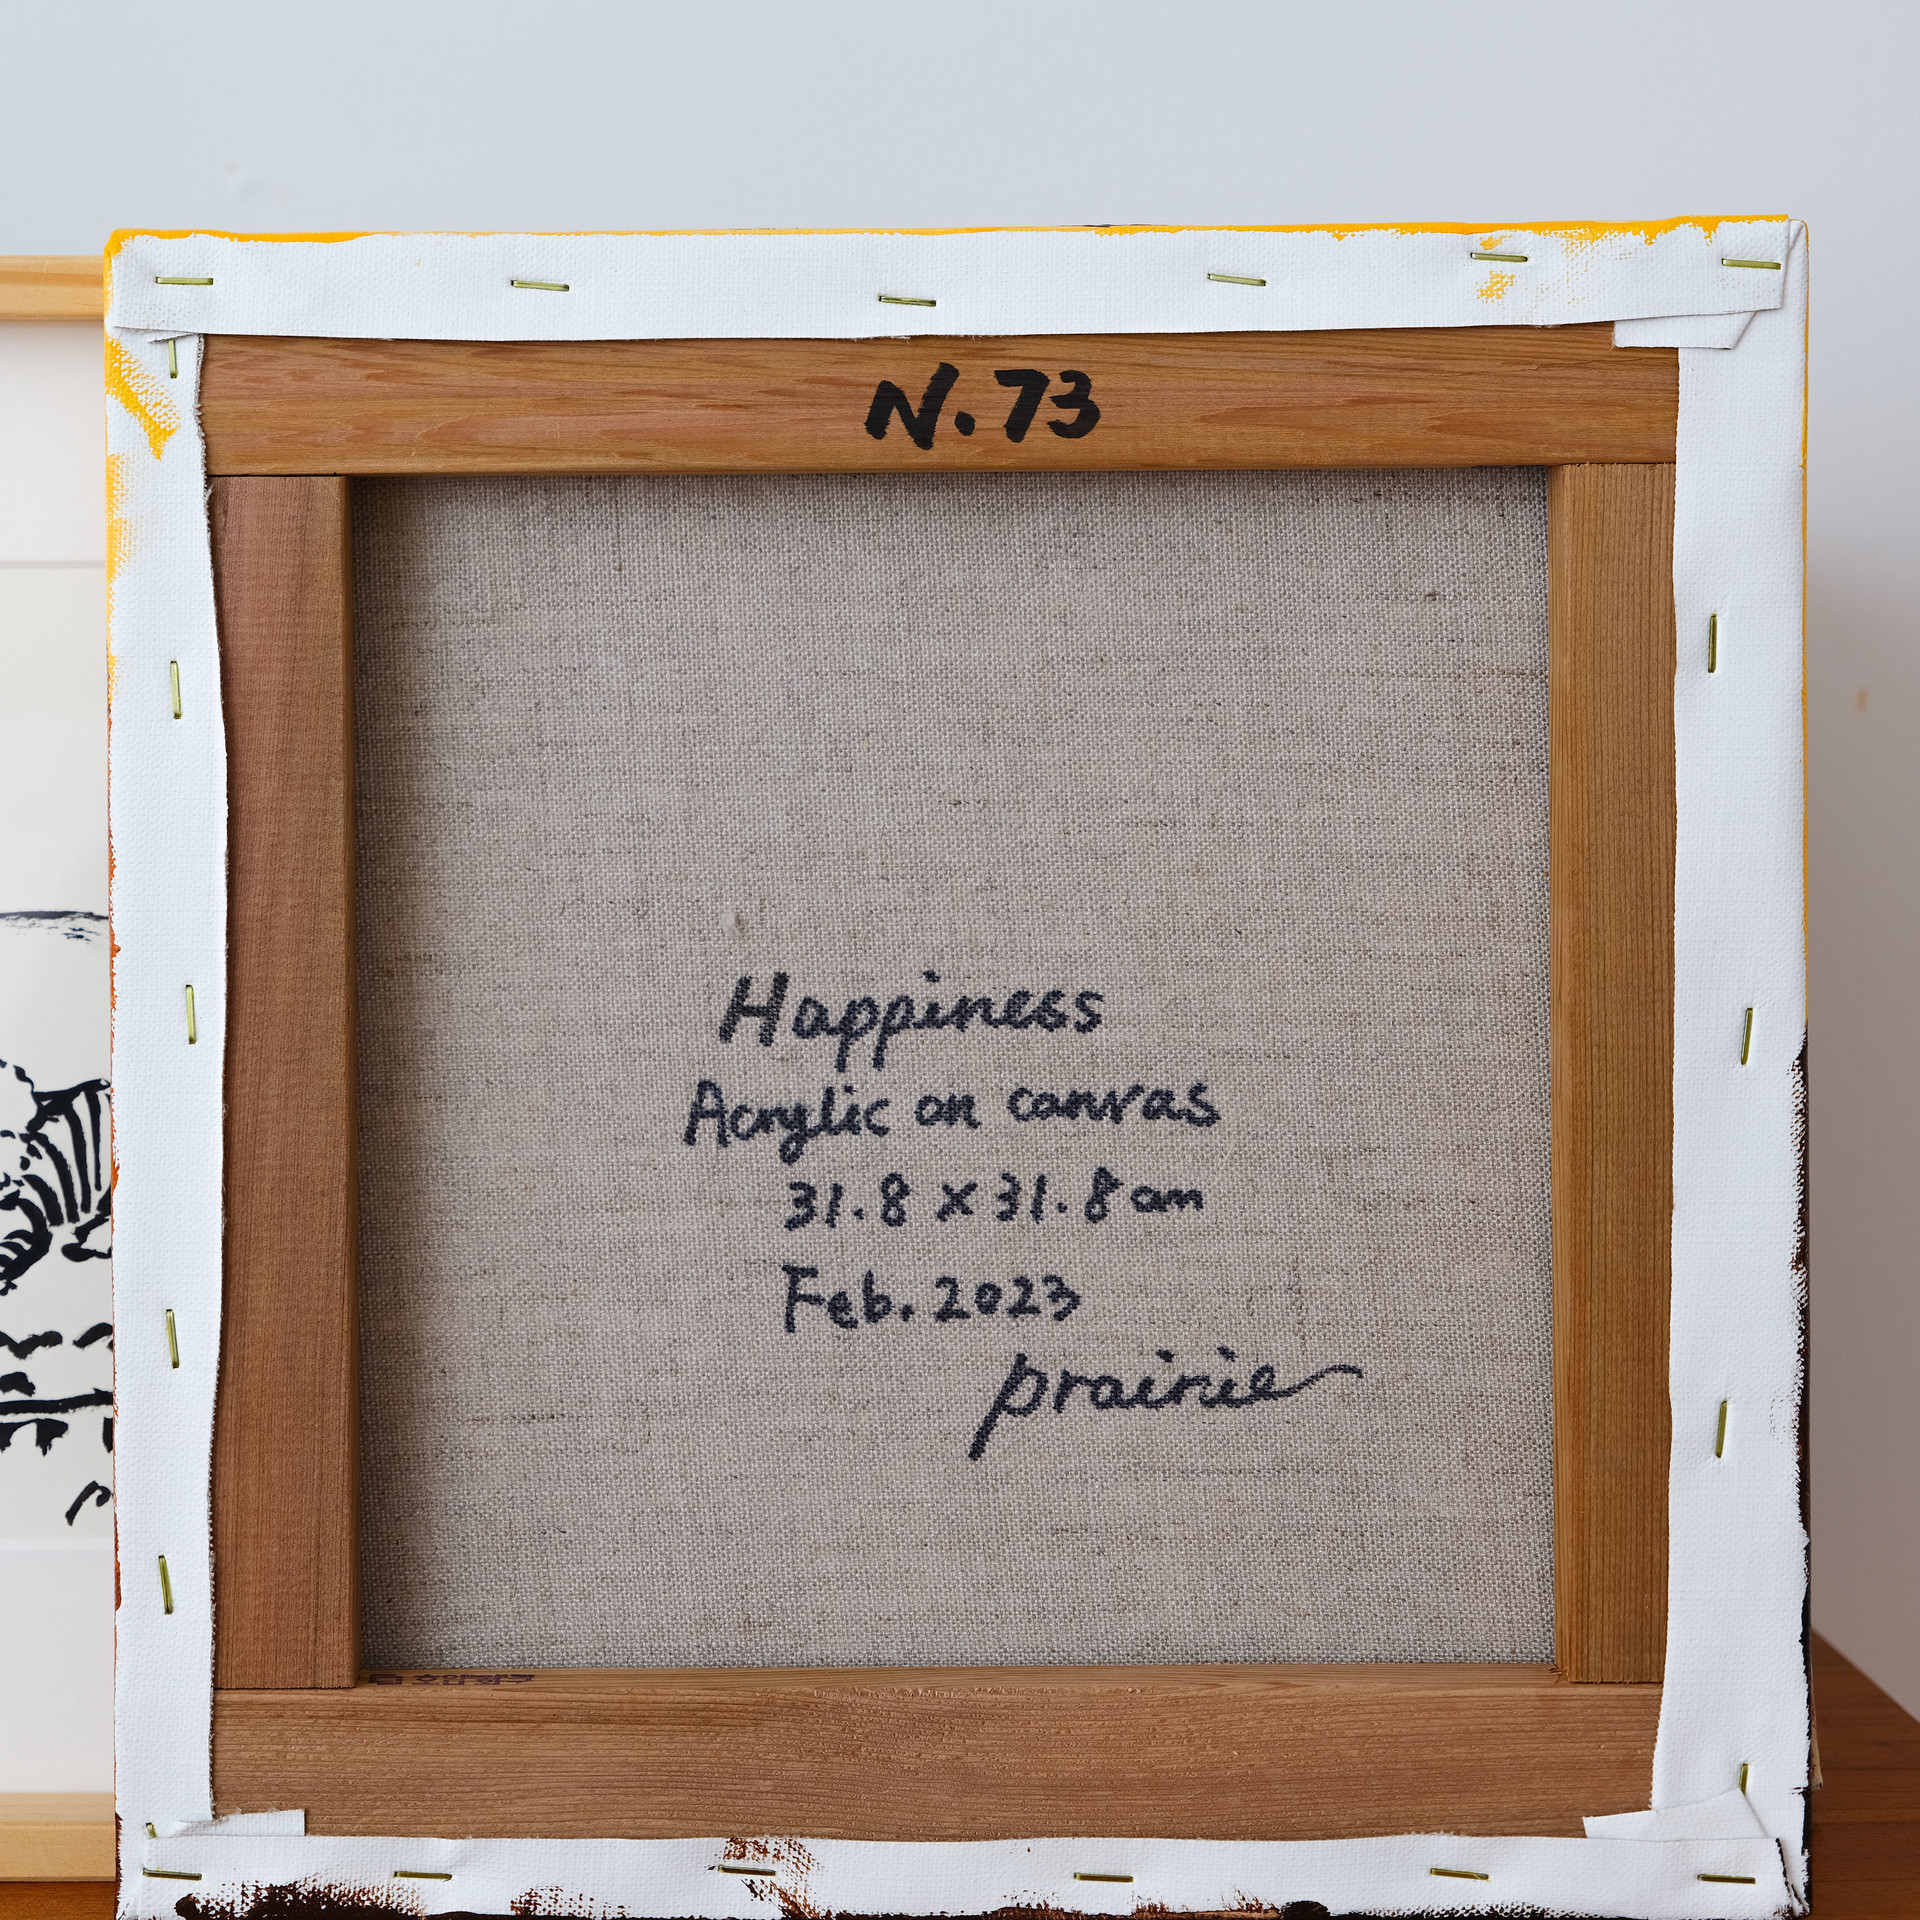 N.73
Happiness
Acrylic on canvas
31.8 x 31.8 cm
Feb. 2023
prairie